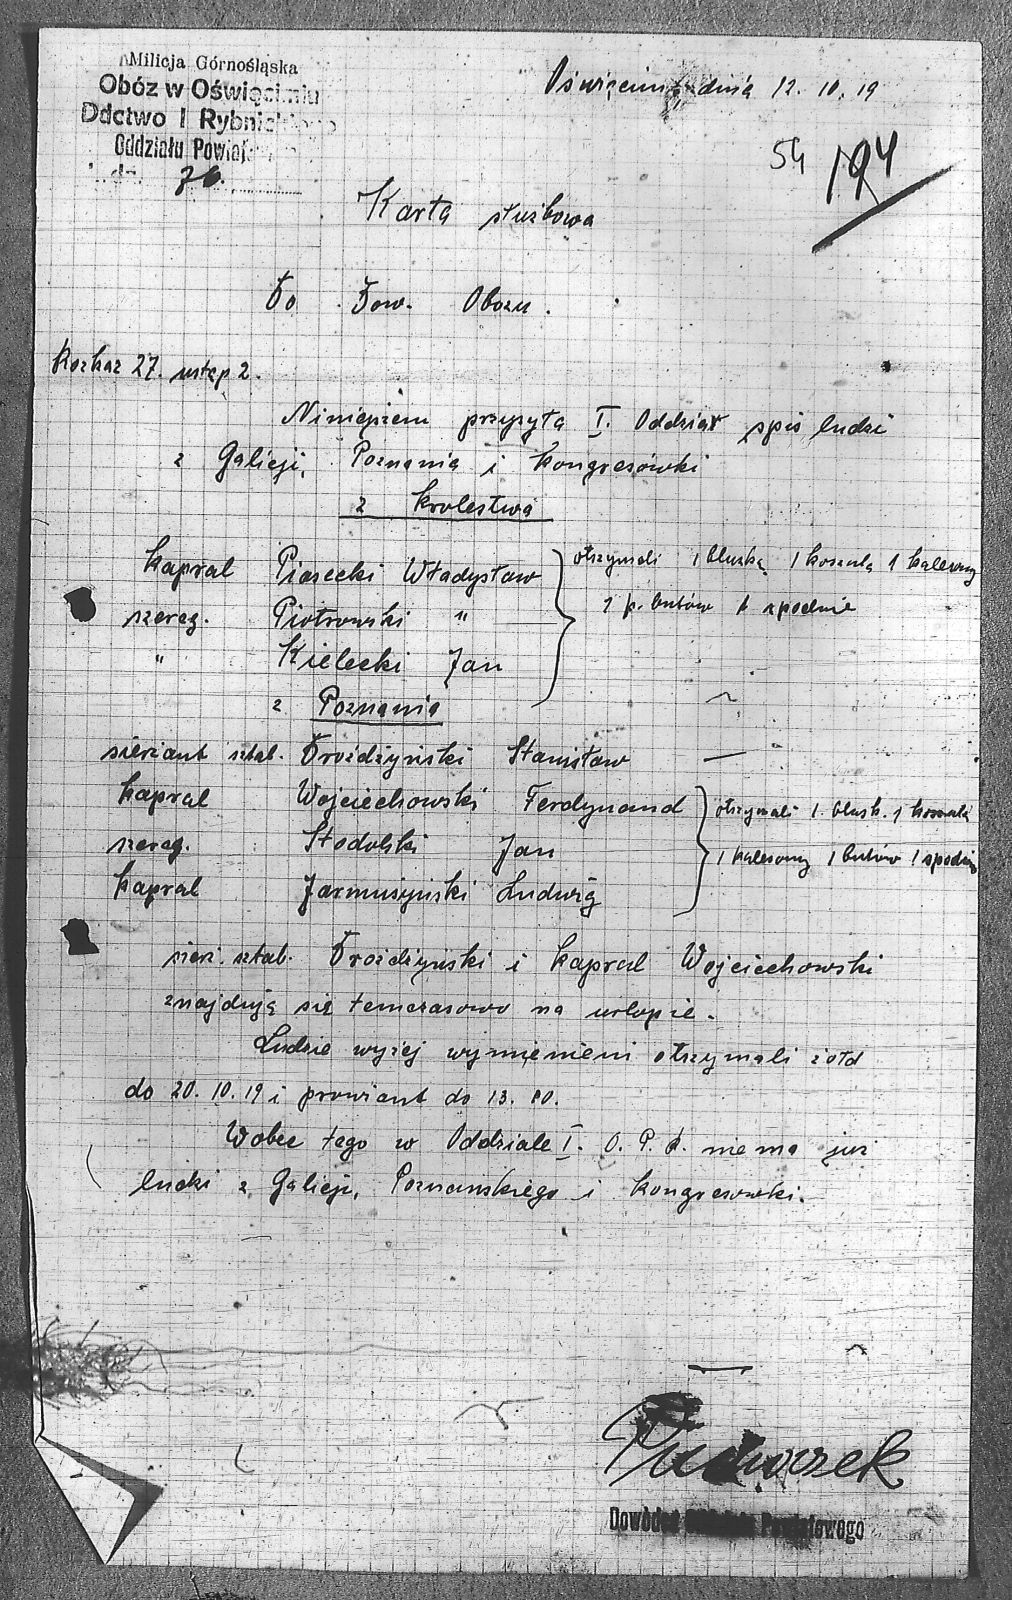 Milicja Górnośląska
Obóz w Oświęcimiu
Ddctwo I Rybnickiego
Oddziału Powiat
l. dz. 70.
Oświęcim dnia 12. 10. 19
54 194
Karta służbowa
Do Dow. Obozu.
Rozkaz 27. ustęp 2.
Niniejszem przysyła I. Oddział spis ludzi
z Galicji, Poznania i Kongresówki
z Krolestwa
Kapral Piasecki Władysław
otrzymali 1 bluzką 1 koszulą 1 kalesony
szereg. Piotrowski "
1 p. butów 1 spodnie
" Kielecki Jan
z Poznania
sierżant sztab. Drożdżyński Stanisław —
Kapral Wojciechowski Ferdynand
otrzymali 1. blusk. 1 koszulą
szereg. Stodolski Jan
1 kalesony 1 butów 1 spodnie
Kapral Jarmużyński Ludwig
sierż. sztab. Drożdżyński i Kapral Wojciechowski
znajdują się temczasowo na urlopie.
Ludzie wyżej wymienieni otrzymali żołd
do 20. 10. 19 i prowiant do 13. 10.
Wobec tego w Oddziale I. O. P. R. niema już
ludzi z Galicji, Poznanskiego i Kongresowki.
Dowódca Oddziału Powiatowego